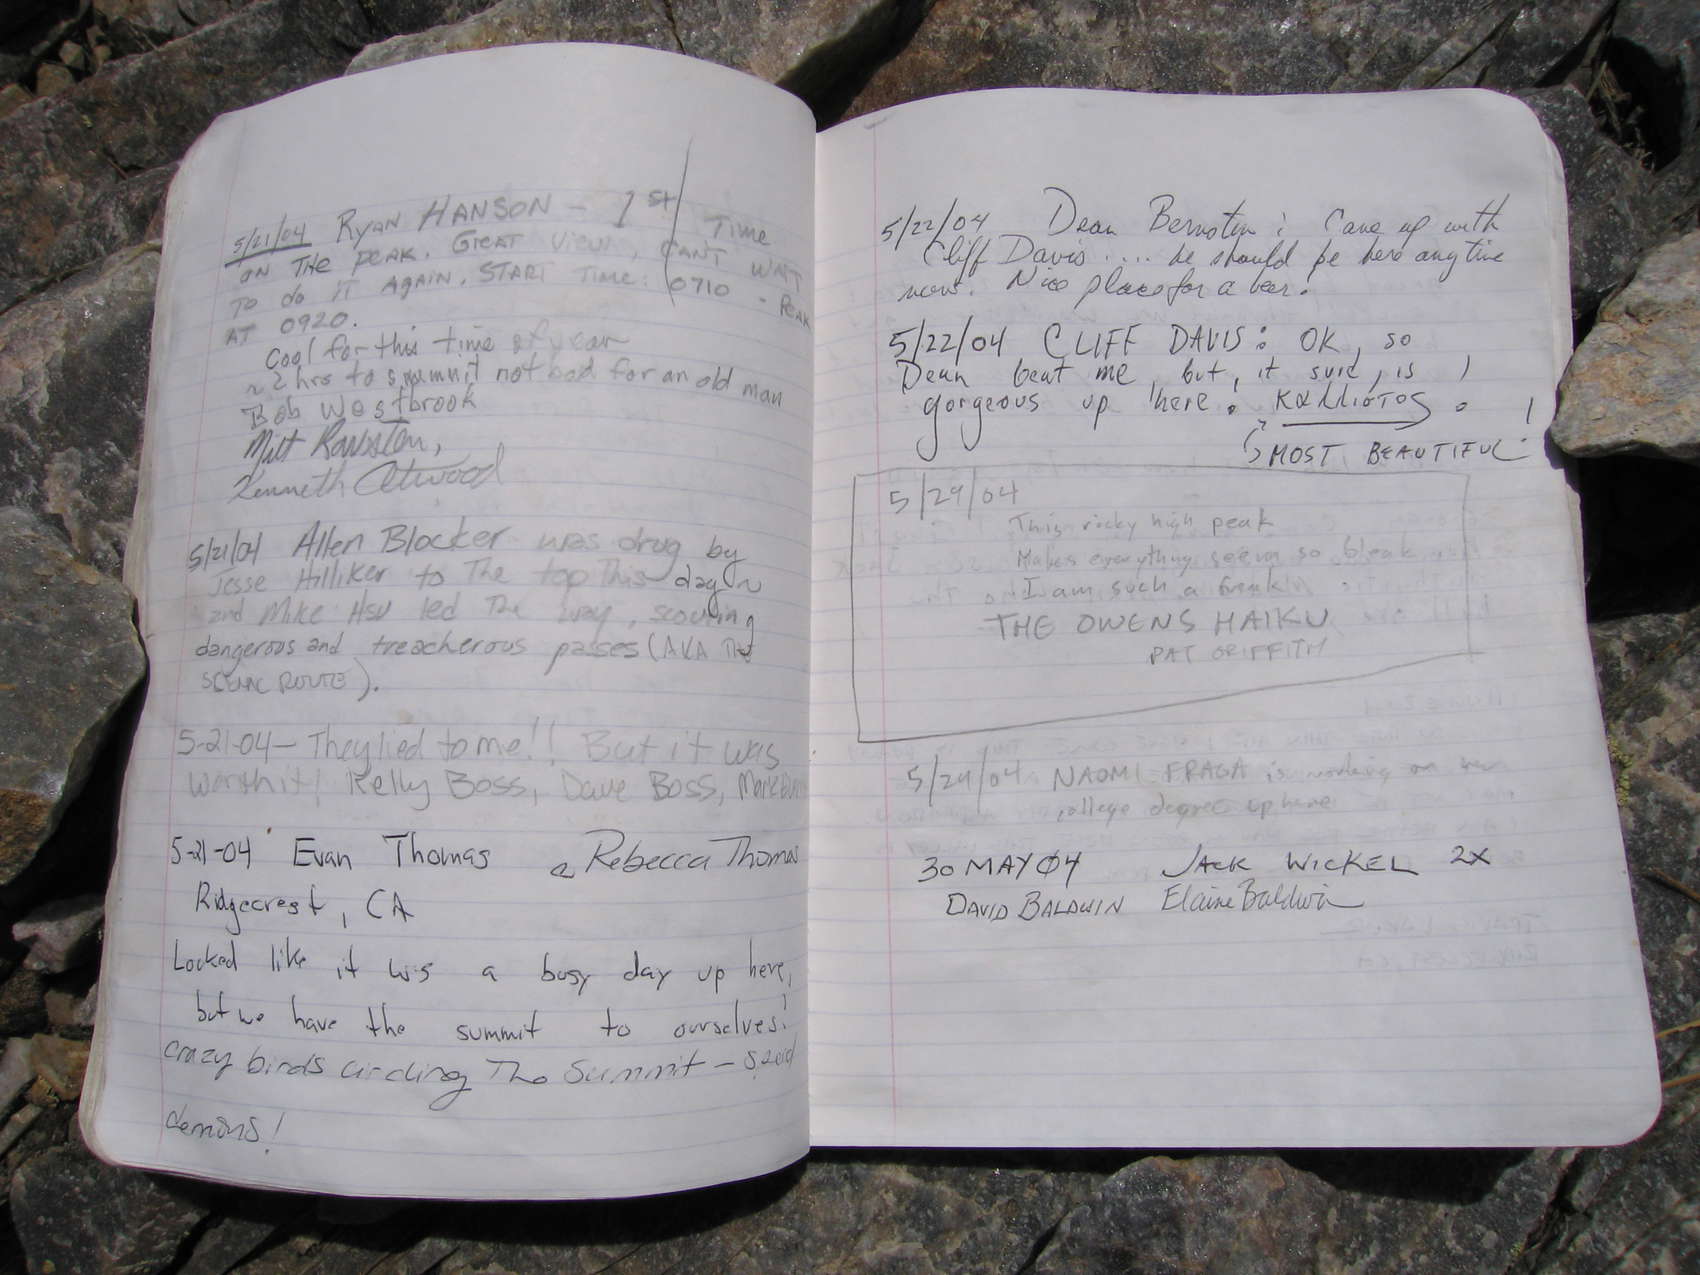 5/21/04 RYAN HANSON - 1st TIME
ON THE PEAK. GREAT VIEW, CAN'T WAIT
TO do IT AGAIN. START TIME: 0710 - PEAK
AT 0920.
Cool for this time of year
~2 hrs to summit not bad for an old man
Bob Westbrook
Milt
Kenneth Atwood
5/21/04 Allen Blocker was drug by
Jesse Hilliker to The top This day ~
and Mike Hsu led The way, scouting
dangerous and treacherous passes (AKA THE
SCENIC ROUTE).
5-21-04 - They lied to me!! But it was
worth it! Kelly Boss, Dave Boss, Mark
5-21-04 Evan Thomas & Rebecca Thomas
Ridgecrest, CA
Looked like it was a busy day up here,
but we have the summit to ourselves!
crazy birds circling The Summit - speed
demons!
5/22/04 Dean Bernsten: Came up with
Cliff Davis .... he should be here anytime
now. Nice place for a beer!
5/22/04 CLIFF DAVIS: OK, so
Dean beat me, but, it sure, is
gorgeous up here! Καλλιστος.
MOST BEAUTIFUL!
5/29/04
This rocky high peak
Makes everything seem so bleak
I am such a freak
THE OWENS HAIKU
PAT GRIFFITH
5/29/04 NAOMI FRAGA is working on her
college degree up here
30 MAY 04 JACK WICKEL 2X
DAVID BALDWIN Elaine Baldwin